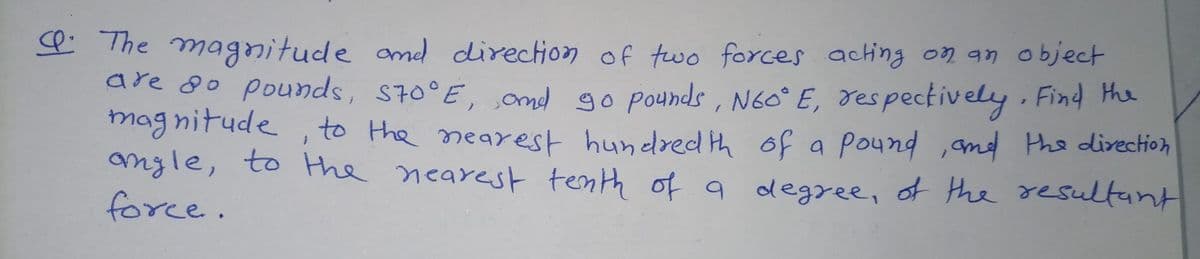 Q. The magnitude and direction of two forces acting on an object
are 80 pounds, S70°E, and 90 pounds, N60°E, respectively. Find the
magnitude, to the nearest hundredth of a pound, and the direction
angle, to the nearest tenth of a degree, of the resultant
force.